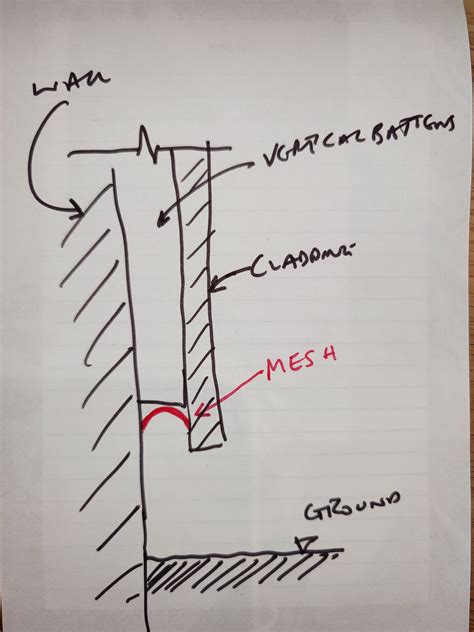 WALL
VERTICAL BATTENS
CLADDING
MESH
GROUND